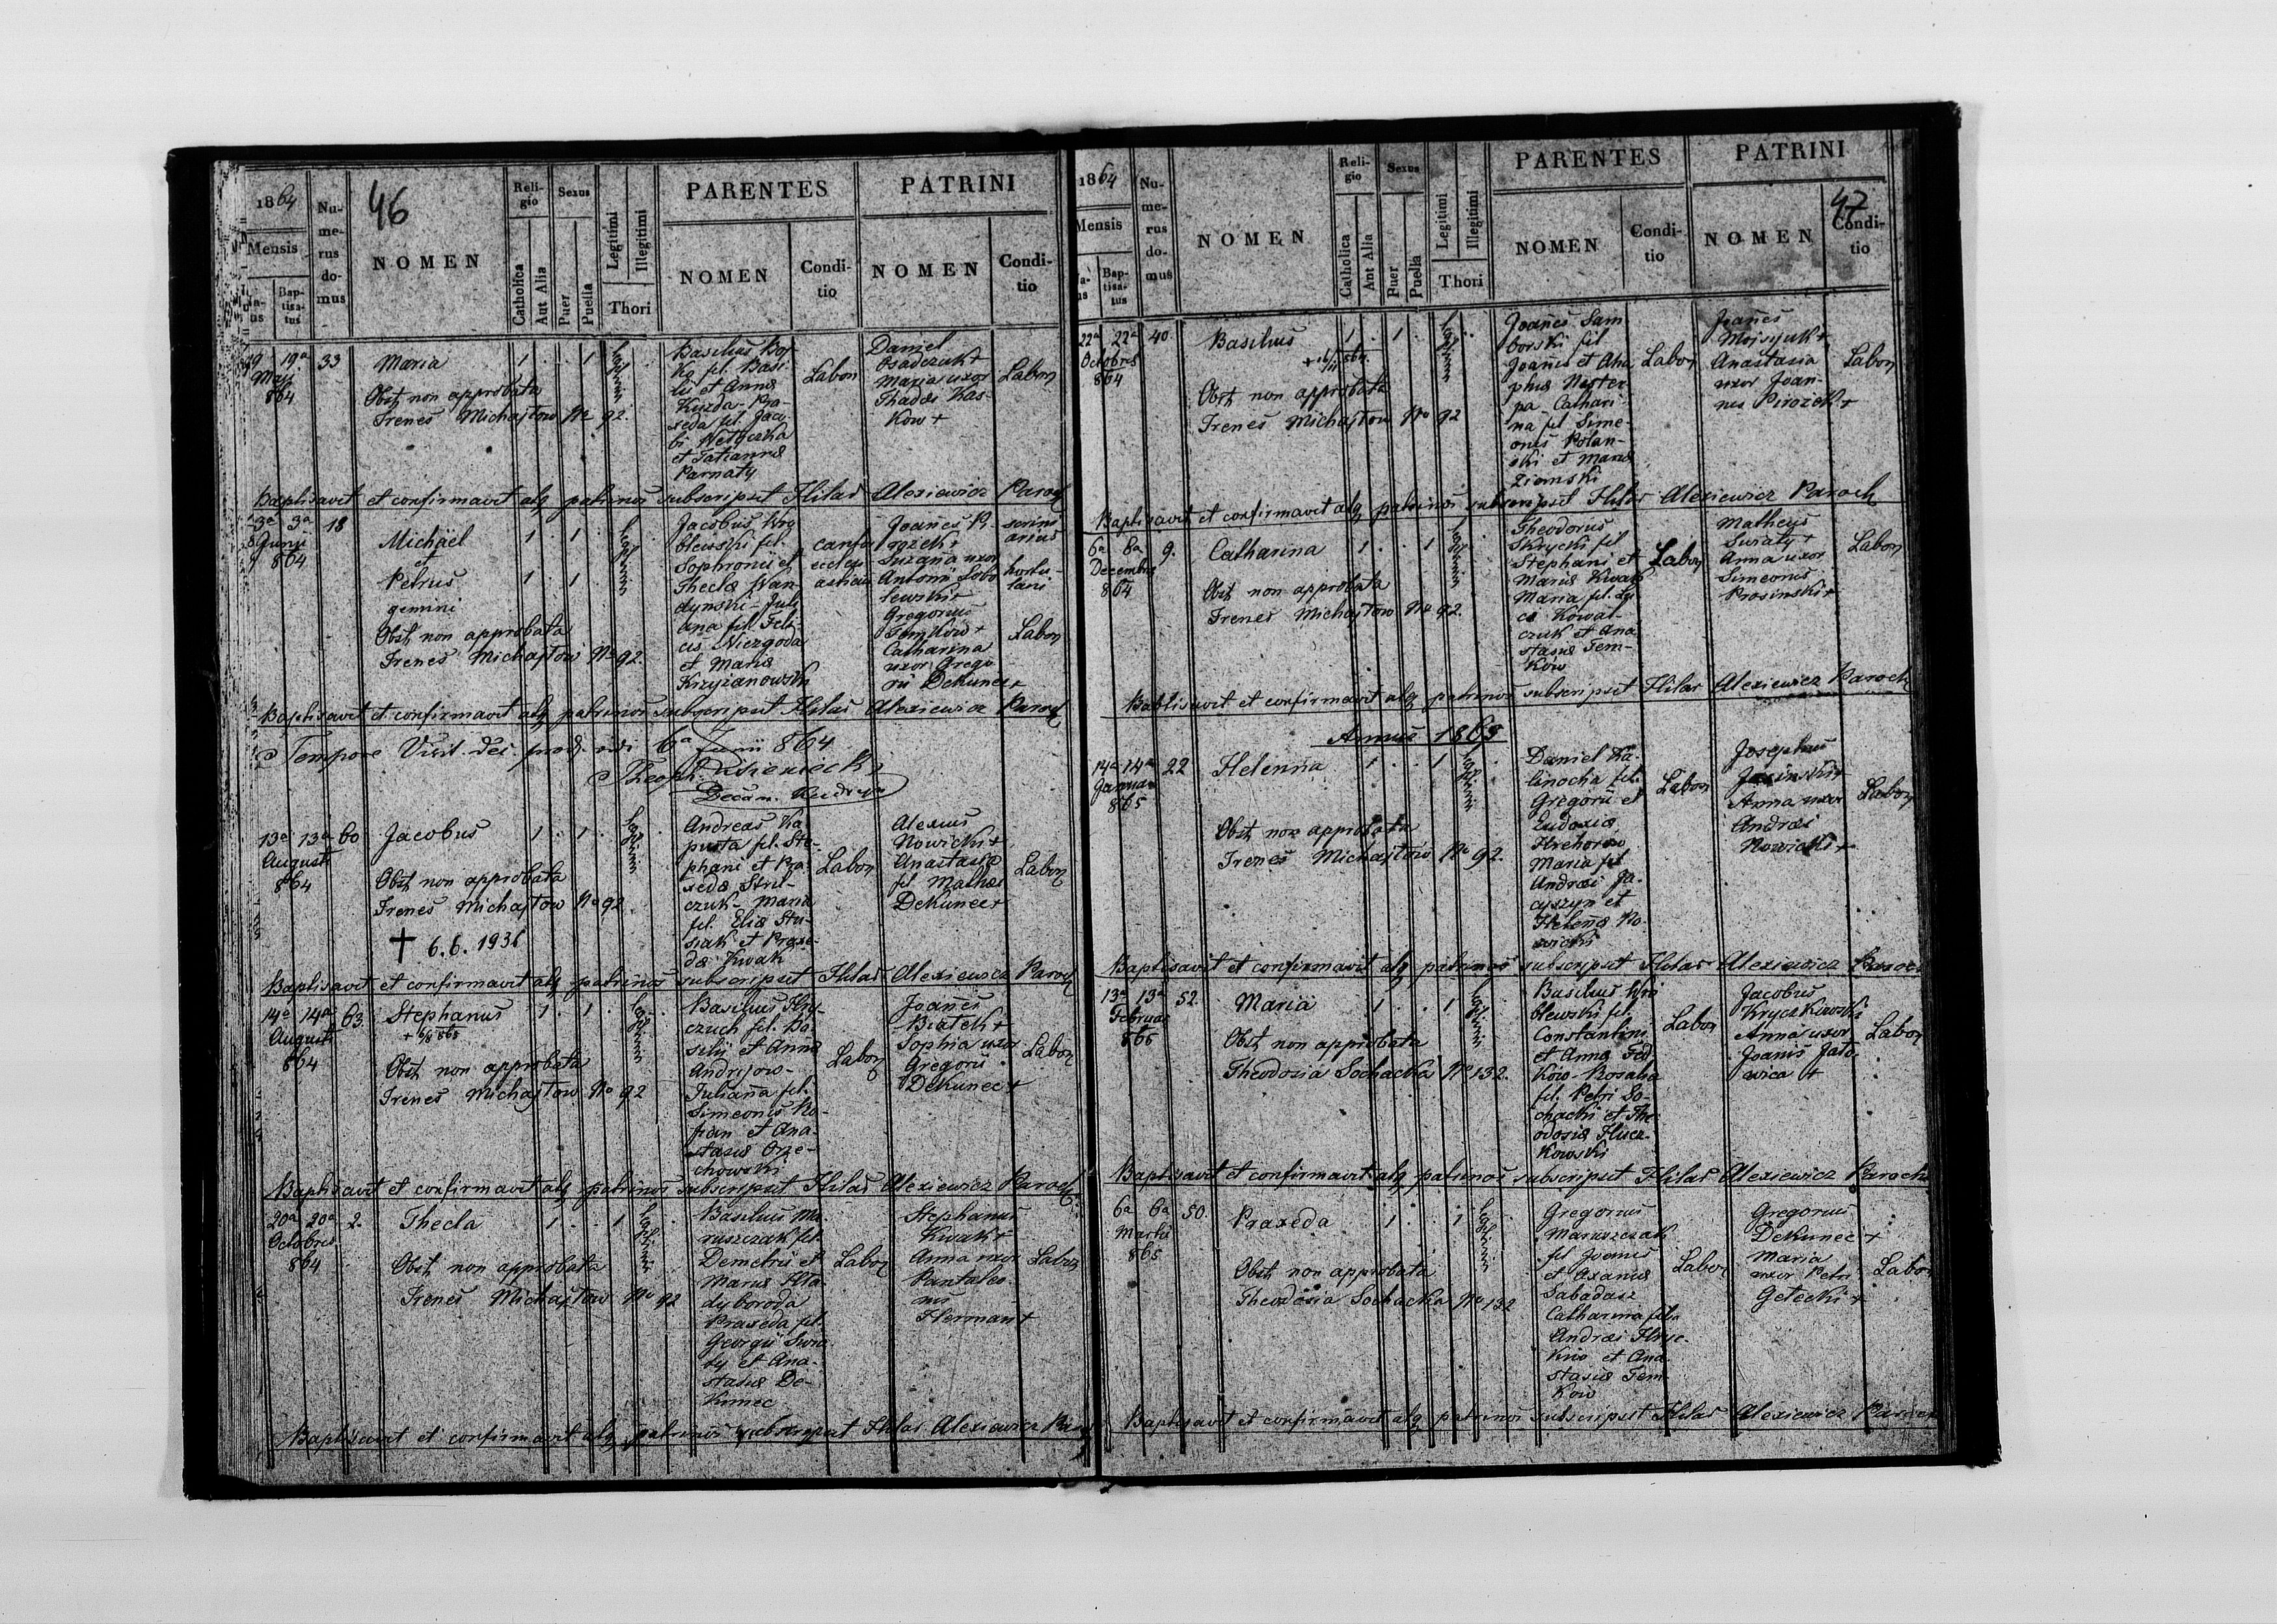 1864
Mensis
Bap-
tisa-
tus
Nu-
me-
rus
do-
mus
46
NOMEN
Reli-
gio
Catholica
Aut Alia
Sexus
Puer
Puella
Legitimi
Illegitimi
Thori
PARENTES
NOMEN
Condi-
tio
PATRINI
NOMEN
Condi-
tio
19 19a 33 Maria 1 . . 1
Maji
864
Obst non approbata
Irenes Michajłow No 92
Basilius Boj
ko fil. Basi
lii et Anna
Kuzda - Pra-
xeda fil. Jaco
bi Netyczka
et Tatianna
Parnaty
Labor
Daniel
Osadczuk +
Maria uxor
Thadei Kas-
kow +
Labor
Baptisavit et confirmavit atq patrinos subscripsit Hilar Alexiewicz Paroch
3a 3a 18
Junii
864
Michäel 1 . 1
et
Petrus 1 . 1
gemini
Obst non approbata
Irenes Michajłow No 92
Jacobus Wro
blewski fil.
Sophronii et
Thecla Wan-
dynski - Juli
ana fil. Feli-
cis Niezgoda
et Maria
Krzyżanowski
cantor
eccles
asticus
Joañes P
rozek +
Suzaña uxor
Antonii Sobo
lewski +
Gregorius
Temkow +
Catharina
uxor Grego
rii Dekunec +
scrini
arius
hortu-
lani
Labor
Baptisavit et confirmavit atq patrinos subscripsit Hilar Alexiewicz Paroch
Tempore Visit. dec. prod. vidi 6a Junii 864
Theoph.
Decan.
13a 13a 60 Jacobus 1 . 1
Augusti
864
Obst non approbata
Irenes Michajłow No 92
† 6.6.1936
Andreas Ka
pusta fil. Ste-
phani et Pra-
xeda Stril-
czuk - Maria
fil. Elia Stu-
siak et Praxe-
da Kwak
Labor
Alexius
Nowicki +
Anastasia
fil. Mathei
Dekunec +
Labor
Baptisavit et confirmavit atq patrinos subscripsit Hilar Alexiewicz Paroch
14a 14a 63. Stephanus 1 . 1
Augusti
864
+ 6/8 868
Obst non approbata
Irenes Michajłow No 92
Basilius Hry-
czuch fil. Ba-
silii et Anna
Andrijow-
Juliaña fil.
Simeonis Ko-
pian et Ana-
stasia Orze-
chowski
Labor
Joañes
Białek +
Sophia uxor
Gregorii
Dekunec +
Labor
Baptisavit et confirmavit atq patrinos subscripsit Hilar Alexiewicz Paroch
20a 20a 2. Thecla 1 . . 1
Octobris
864
Obst non approbata
Irenes Michajłow No 92
Basilius Ma-
ruszczak fil.
Demetrii et
Maria Hła-
dyboroda
Praxeda fil.
Georgii Swia
ty et Ana-
stasia De-
kunec
Labor
Stephanus
Kwak +
Anna uxor
Pantaleo-
nis
Herman +
Labor
Baptisavit et confirmavit atq patrinos subscripsit Hilar Alexiewicz Paroch
1864
Mensis
Bap-
tisa-
tus
Nu-
me-
rus
do-
mus
NOMEN
Reli-
gio
Catholica
Aut Alia
Sexus
Puer
Puella
Legitimi
Illegitimi
Thori
PARENTES
NOMEN
Condi-
tio
PATRINI
NOMEN
47
Condi-
tio
22a 22a 40 Basilius 1 . 1
Octobris
864
Obst non approbata
Irenes Michajłow No 92
Joañes Sam
borski fil
Joañis et Aha
phia Nester-
pa - Cathari
na fil Sime-
onis Polan-
ski et Maria
Ziemski
Labor
Joañes
Mojsijuk +
Anastasia
uxor Joan-
nes Pirozek +
Labor
Baptisavit et confirmavit atq patrinos subscripsit Hilar Alexiewicz Paroch
6a 8a 9. Catharina 1 . . 1
Decembris
864
Obst non approbata
Irenes Michajłow No 92.
Theodorus
Skrycki fil
Stephani et
Maria Kwak
Maria fil. Lu
ca Kowal-
czuk et Ana
stasia Tem-
kow
Labor
Matheus
Swiaty +
Anna uxor
Simeonis
Prosinski +
Labor
Baptisavit et confirmavit atq patrinos subscripsit Hilar Alexiewicz Paroch
Annus 1865
14a 14a 22 Helenna 1 . . 1
Januar
865
Obst non approbata
Irenes Michajłow No 92.
Daniel Ka-
linocha fil.
Gregorii et
Eudoxia
Hrehorow
Maria fil
Andrei Ja-
cyszyn et
Heleña No-
wicki
Labor
Josephus
Anna uxor
Andrei
Nowicki +
Labor
Baptisavit et confirmavit atq patrinos subscripsit Hilar Alexiewicz Paroch
13a 13a 52. Maria 1 . . 1
Februar
865
Obst non approbata
Theodosia Sochacka No 132.
Basilius Wro
blewski fil.
Constantini
et Anna Fed
kow - Rosalia
fil. Petri So-
chacki et The
odosia Hlucz-
kowski
Labor
Jacobus
Kryczkowski
Anna uxor
Joanis Jato-
wica +
Labor
Baptisavit et confirmavit atq patrinos subscripsit Hilar Alexiewicz Paroch
6a 6a 50. Praxeda 1 . . 1
Martii
865
Obst non approbata
Theodosia Sochacka No 132
Gregorius
Maruszczak
fil Joanis
et Oxania
Sabadasz
Catharina filia
Andrei Hryc-
kiw et Ana
stasia Tem
kow
Labor
Gregorius
Dekunec +
Maria
uxor Petri
Getecki +
Labor
Baptisavit et confirmavit atq patrinos subscripsit Hilar Alexiewicz Paroch